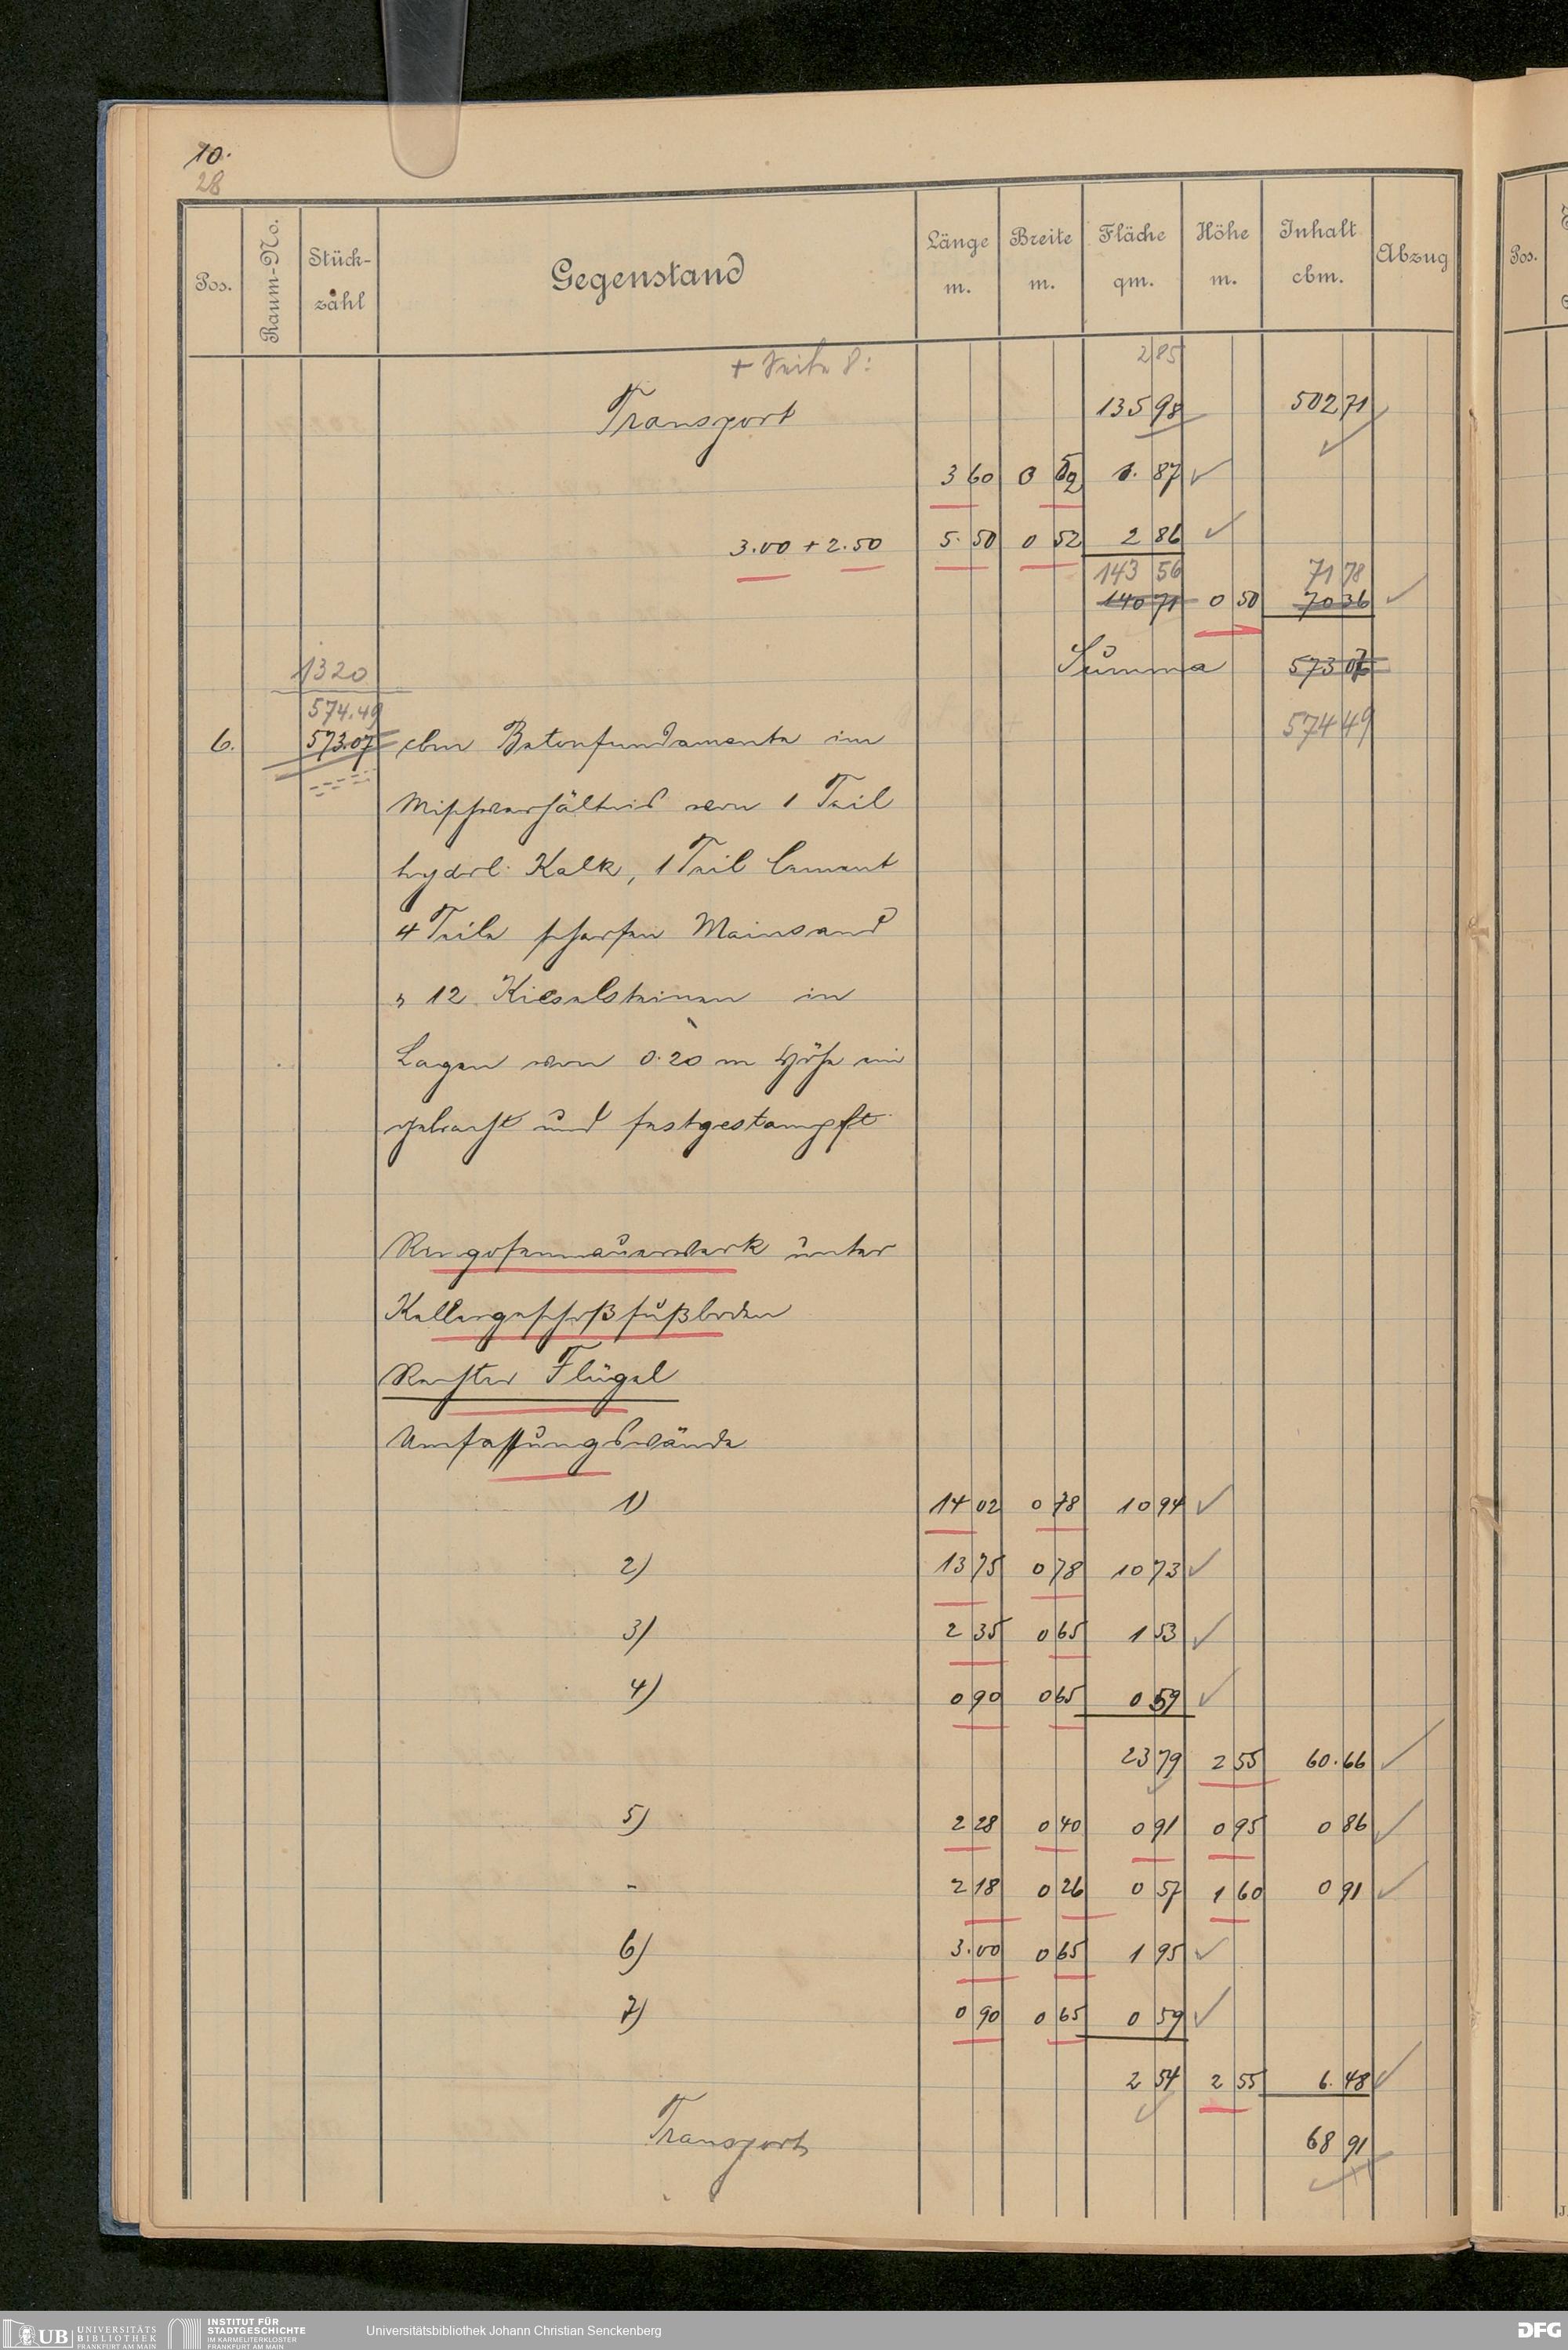 10.
28
Pos.
Raum-No.
Stück-
zahl
Gegenstand
Länge
m.
Breite
m.
Fläche
qm.
Höhe
m.
Inhalt
cbm.
Abzug
Pos.
+ Seite 8: 2 85
Transport 135 98 502 71
3 60 0 52 1. 87
3.00 + 2.50 5. 50 0 52 2 86
143 56 71 78
140 71 0 50 70 36
1320 Summa 573 07
574.49 574 49
6. 573.07 cbm Betonfundamente im
Mischverhältnis von 1 Teil
hydrl. Kalk, 1 Teil Cement
4 Teile scharfen Mainsand
" 12 Kieselsteinen in
Lagen von 0.20 m Höhe ein
gebracht und festgestampft
Ringofenmauerwerk unter
Kellergeschoßfußboden
Rechter Flügel
Umfassungswände
1) 14 02 0 78 10 94
2) 13 75 0 78 10 73
3) 2 35 0 65 1 53
4) 0 90 0 65 0 59
23 79 2 55 60.66
5) 2 28 0 40 0 91 0 95 0 86
- 2 18 0 26 0 57 1 60 0 91
6) 3.00 0 65 1 95
7) 0 90 0 65 0 59
2 54 2 55 6. 48
Transport 68 91
UB UNIVERSITÄTS
BIBLIOTHEK
FRANKFURT AM MAIN
INSTITUT FÜR
STADTGESCHICHTE
IM KARMELITERKLOSTER
FRANKFURT AM MAIN
Universitätsbibliothek Johann Christian Senckenberg
DFG